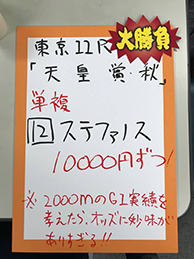 東京11R
大勝負
「天皇賞・秋」
単複
12 ステファノス
10000円ずつ!
※2000mのG1実績を
考えたら、オッズに妙味が
ありすぎる!!